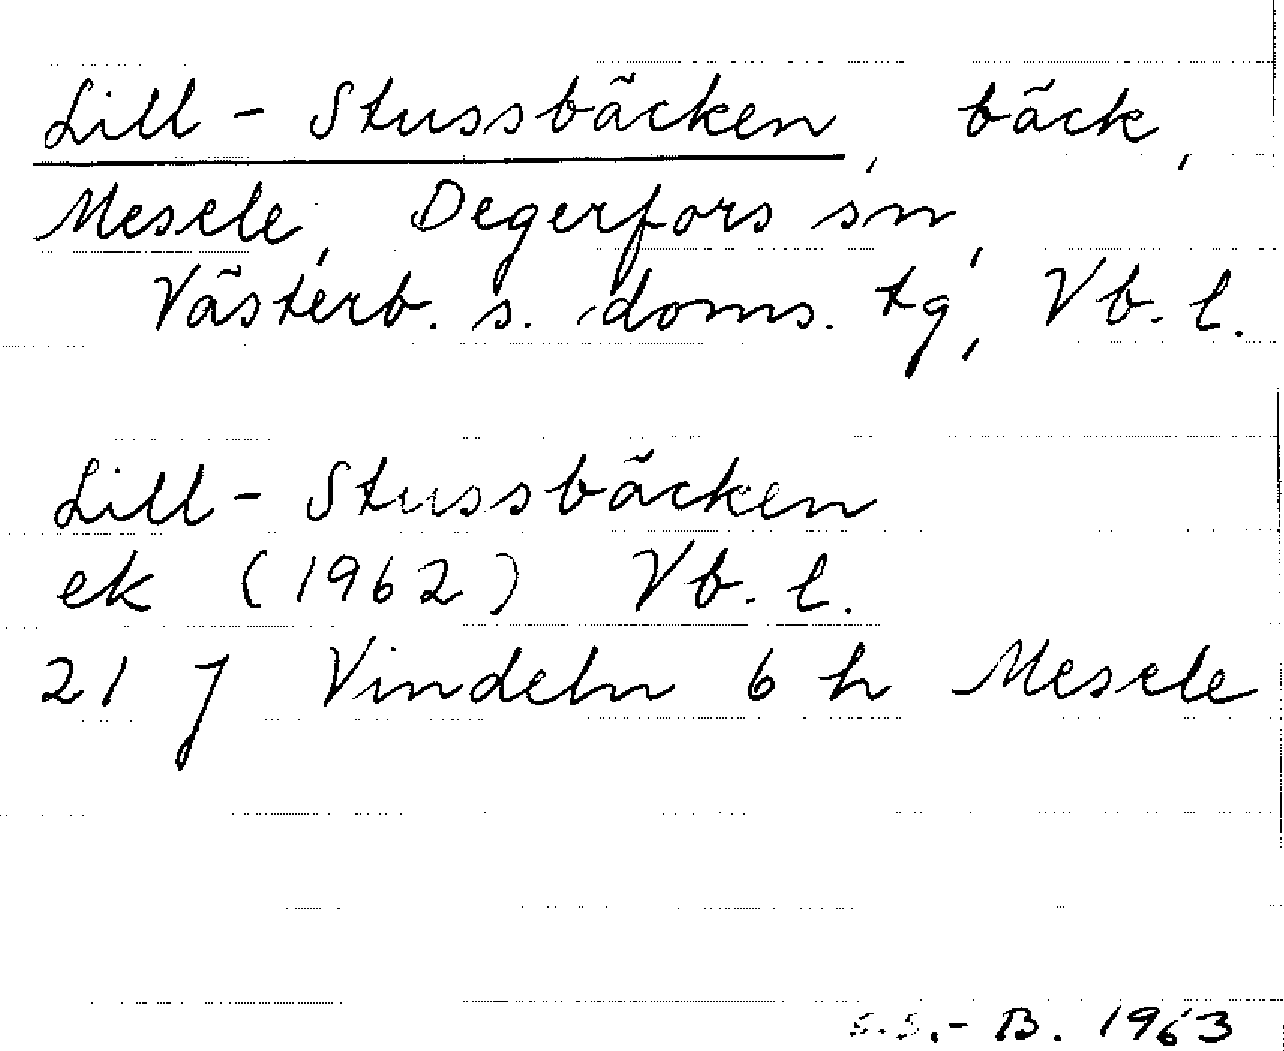 Lill-Stussbäcken, bäck,
Mesele, Degerfors sn,
Västerb. s. doms. tg, Vb. l.
Lill-Stussbäcken
ek (1962) Vb. l.
21 J Vindeln 6 h Mesele
S.S.-B. 1963